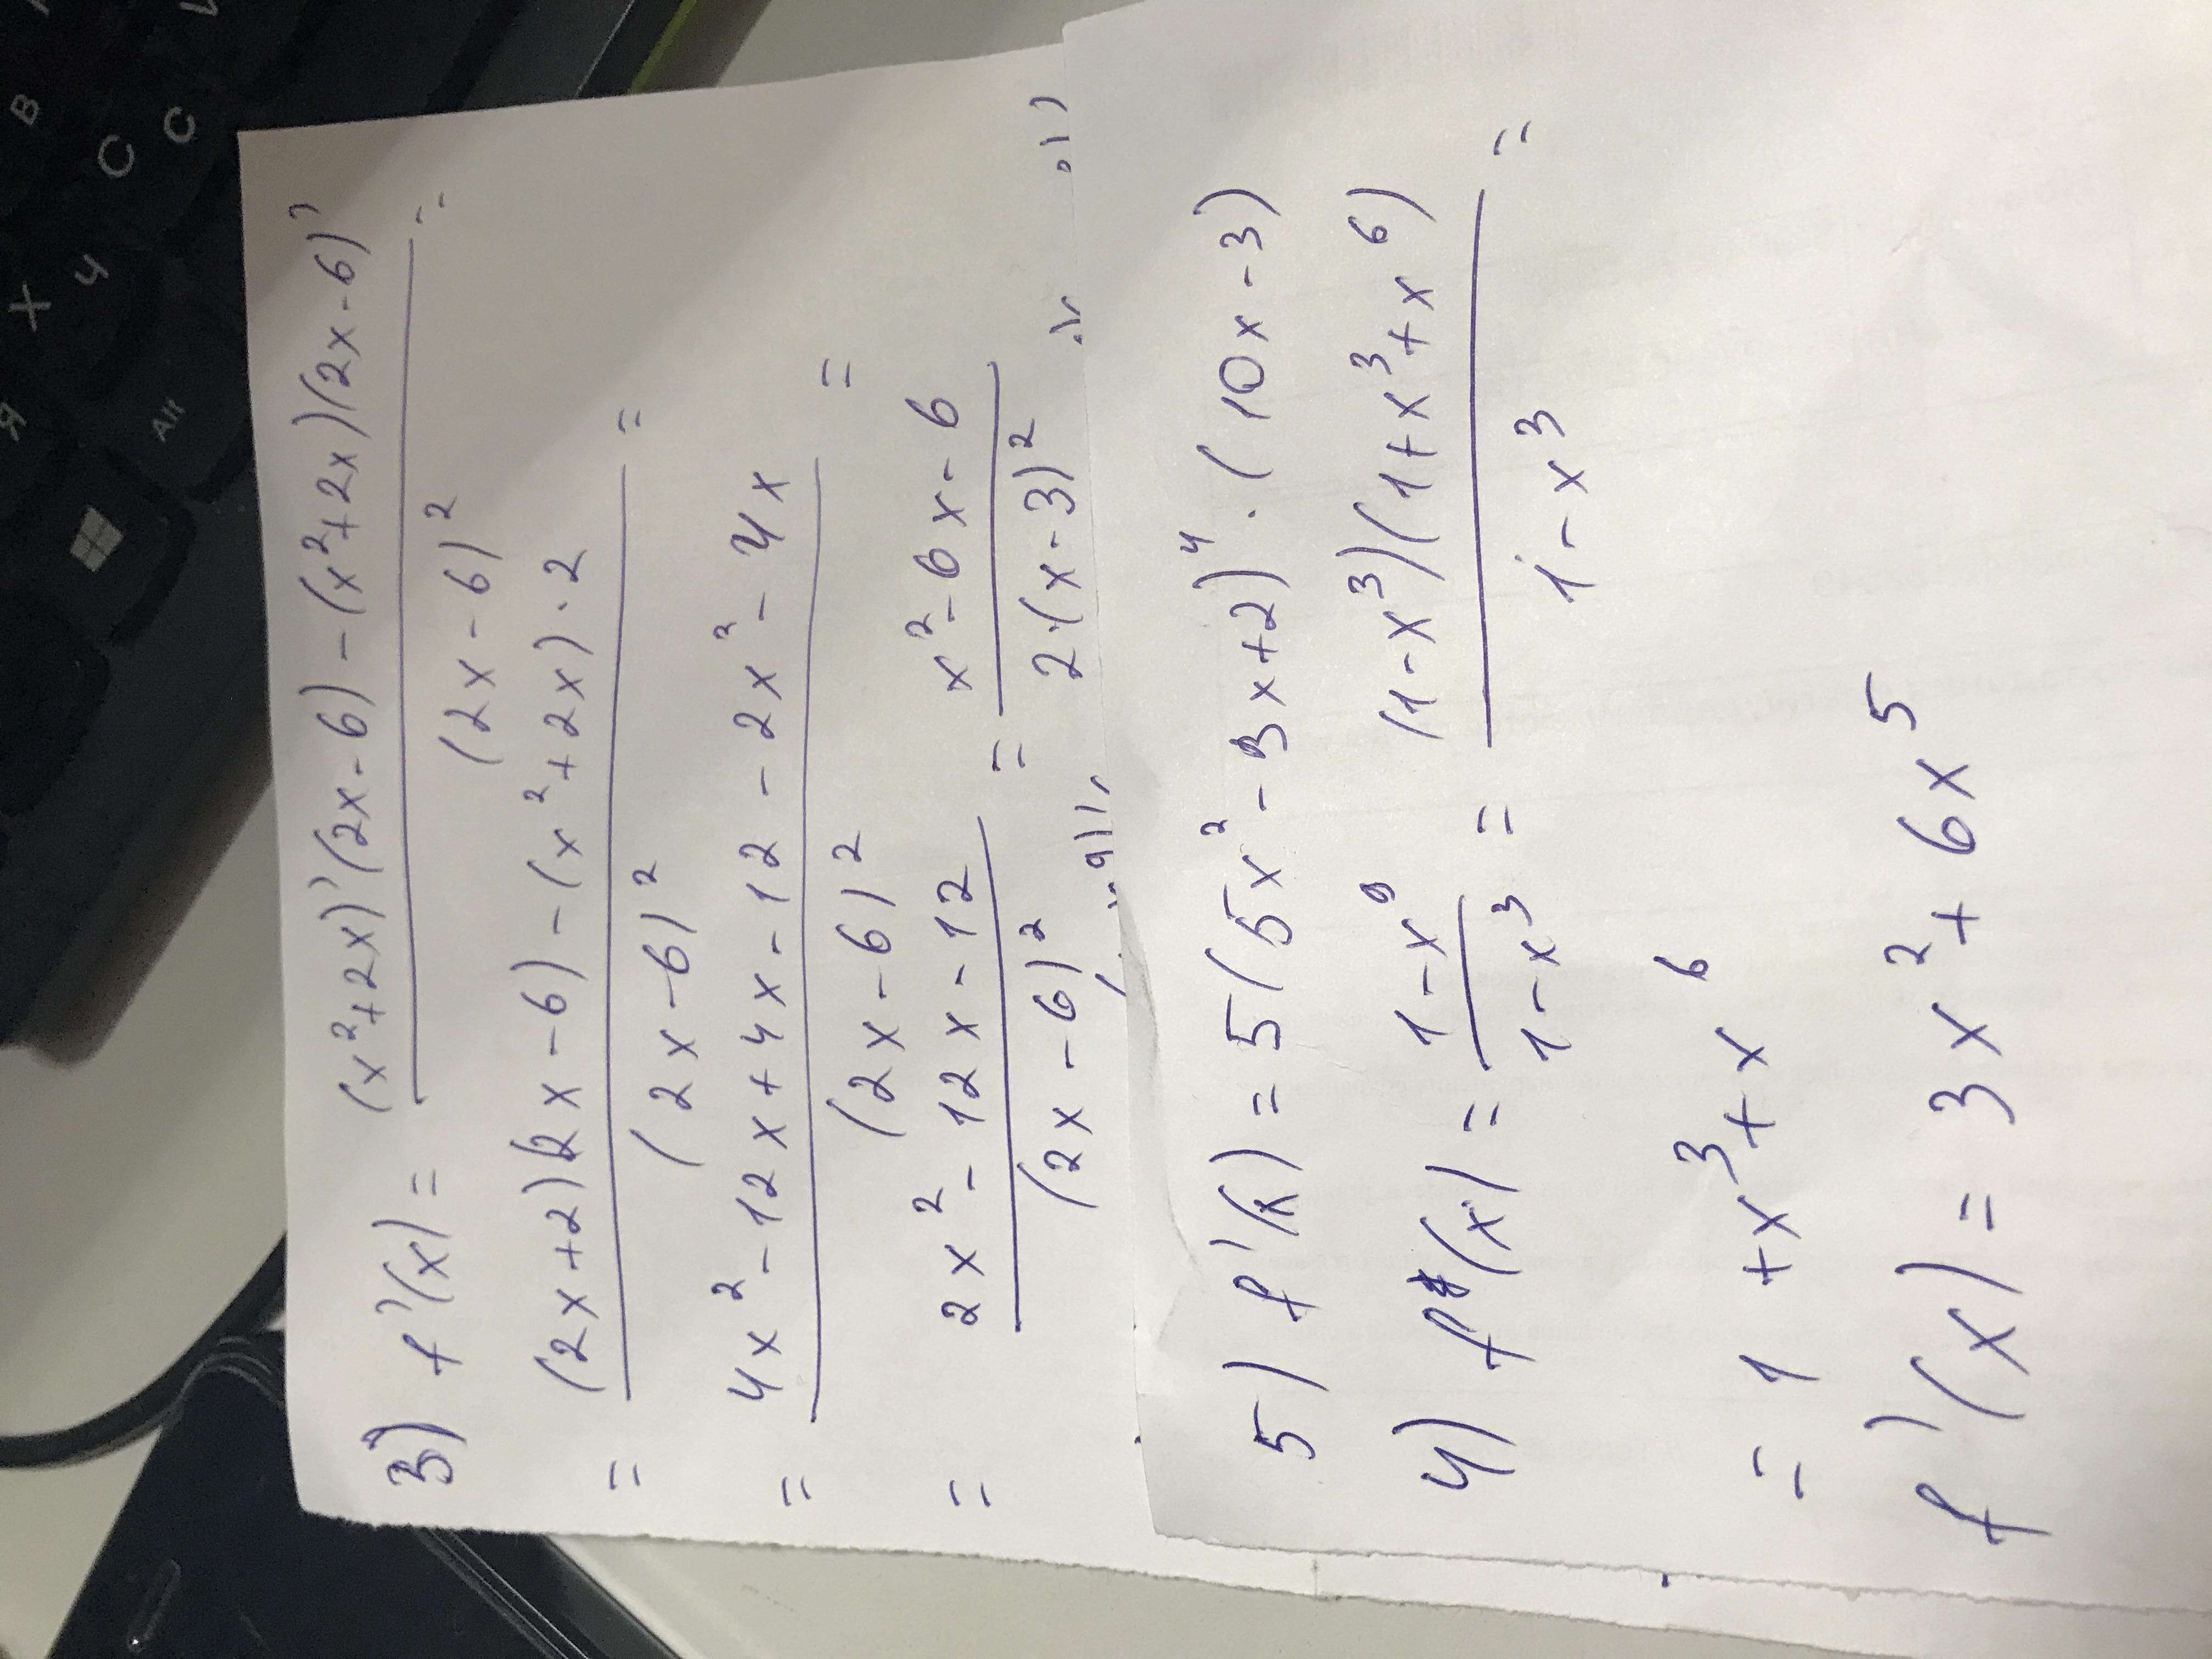 3) f'(x) = ((x²+2x)'(2x-6) - (x²+2x)(2x-6)')/(2x-6)² =
= ((2x+2)(2x-6) - (x²+2x)·2)/(2x-6)² =
= (4x²-12x+4x-12-2x²-4x)/(2x-6)² =
= (2x²-12x-12)/(2x-6)² = (x²-6x-6)/(2·(x-3)²)
5) f'(x) = 5(5x²-3x+2)⁴·(10x-3)
4) f(x) = (1-x⁹)/(1-x³) = ((1-x³)(1+x³+x⁶))/(1-x³) =
= 1+x³+x⁶
f'(x) = 3x²+6x⁵
В
С
С
Х
Ч
Я
Alt